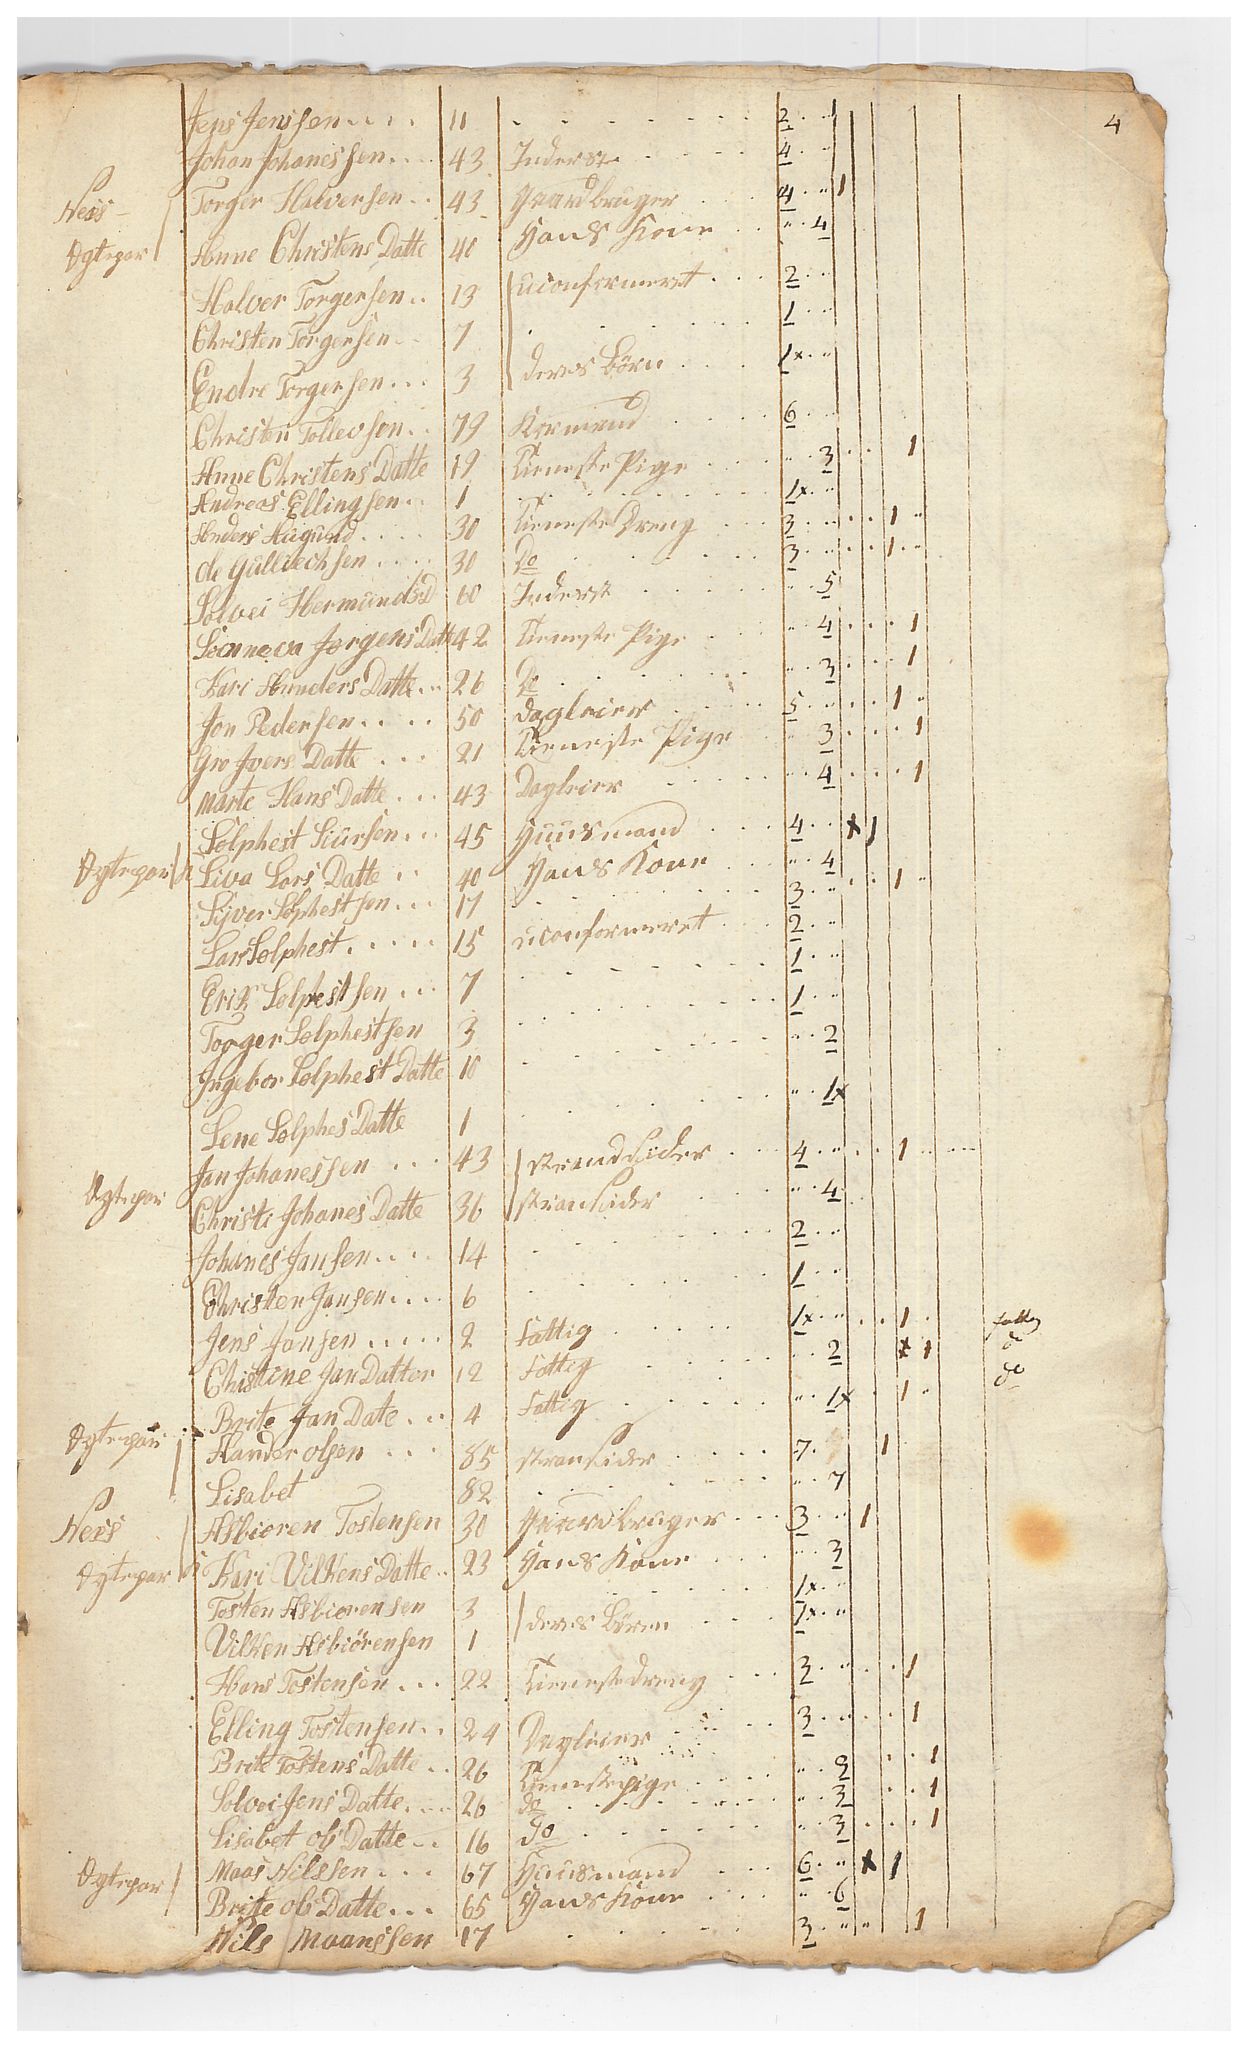 4
Jens Jenssen 11 2
Johan Johanessen 43 Inderste 4
Ness Torger Halversen 43 Gaardbruger 4 1
Ægtepar Anne Christens Datte 40 Hans Kone 4
Halver Torgersen 13 uconfirmeret 2
Christen Torgersen 7 1
Endre Torgersen 3 deres Börn 1x
Christen Tollevsen 79 Kaarmand 6
Anne Christens Datte 19 Tieneste Pige 3 1
Andreas Ellingsen 1 1x
Anders Augund 30 Tieneste Dreng 3 1
30 Do 3 1
Solvei Hermunds D 60 Inderste 5
Sönneva Jørgens Datte 42 Tieneste Pige 4 1
Kari Anders Datte 26 Do 3 1
Jon Pedersen 50 dagleier 5 1
Gro Ivers Datte 21 Tieneste Pige 3 1
Marte Hans Datte 43 Dagleier 4 1
Solphest Siursen 45 Huusmand 4 x 1
Ægtepar Liva Lars Datte 40 Hans Kone 4
Sÿver Solphestsen 17 3 1
Lars Solphest 15 uconfirmeret 2
Erik Solphestsen 7 1
Torger Solphestsen 3 1
Ingebor Solphest Datte 10 2
Lene Solphes Datte 1 1x
Jan Johanessen 43 strandsider 4 1
Ægtepar Christi Johanes Datte 36 stransider 4
Johanes Jansen 14 2
Christen Jansen 6 1
Jens Jansen 2 Fattig 1x 1 fattig
Christine Jan Datter 12 Fattig 2 x 1 do
Brite Jan Date 4 Fattig 1x 1 do
Ægtepar Hander olsen 85 stransider 7 1
Lisabet 82 7
Ness Asbiøren Tostensen 30 Gaardbruger 3 1
Ægtepar Kari Vilkens Datte 23 Hans Kone 3
Tosten Asbiørensen 3 1x
Vilken Asbiörensen 1 deres Bören 1x
Hans Tostensen 22 Tienestedreng 3 1
Elling Tostensen 24 Dagleier 3 1
Brite Tostens Datte 26 Tienestepige 3 1
Solvei Jens Datte 26 do 3 1
Lisabet ols Datte 16 do 3 1
Ægtepar Maas Nilssen 67 Huusmand 6 x 1
Brite ols Datte 65 Hans Kone 6
Nils Maanssen 17 3 1